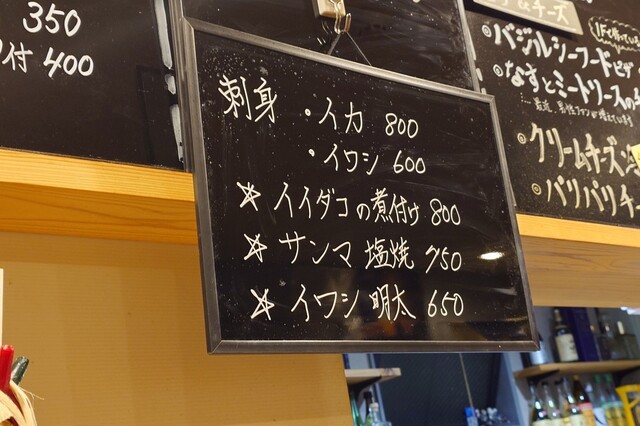 350
付 400
刺身 ・イカ 800
・イワシ 600
☆ イイダコの煮付け 800
☆ サンマ 塩焼 750
☆ イワシ 明太 650
チーズ
1Fで
◎バジルシーフードピザ
◎なすとミートソースの
…最近、男性ファンが増えています
◎クリームチーズ
◎パリパリチー